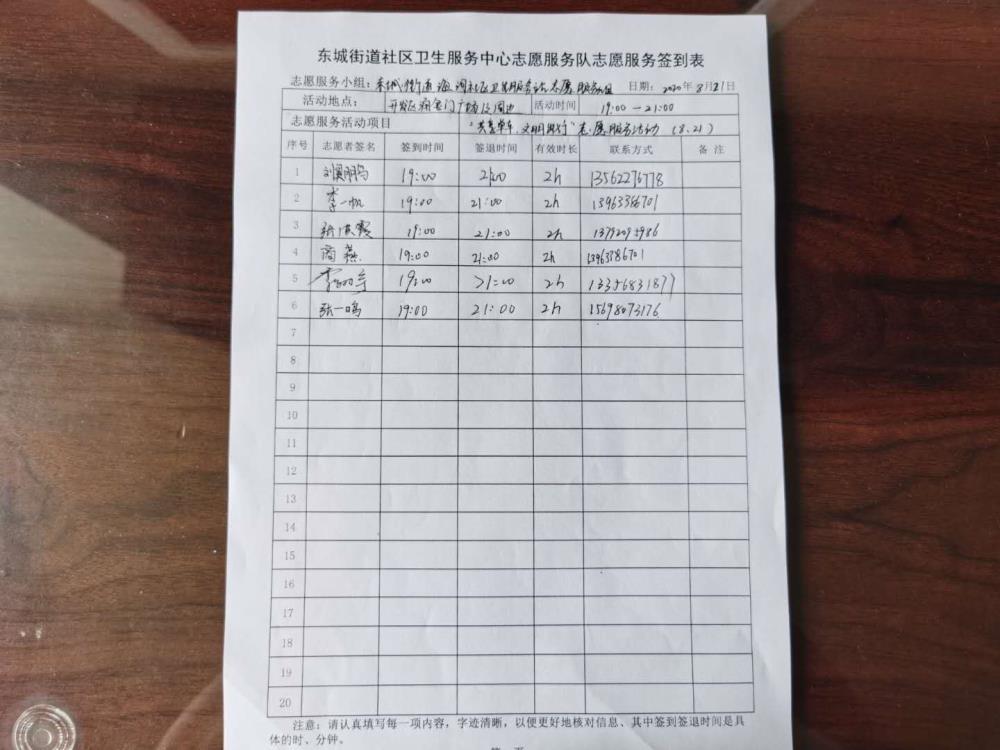 东城街道社区卫生服务中心志愿服务队志愿服务签到表
志愿服务小组：东城街道 社区卫生服务站志愿服务组 日期：2020年8月21日
活动地点： 开发区 门广场及周边 活动时间 19:00—21:00
志愿服务活动项目 “共享单车，文明出行”志愿服务活动（8.21）
序号 志愿者签名 签到时间 签退时间 有效时长 联系方式 备 注
1 19:00 21:00 2h 13562276778
2 李一帆 19:00 21:00 2h 13963386701
3 19:00 21:00 2h
4 商燕 19:00 21:00 2h 13963786701
5 19:00 21:00 2h 13356831877
6 张一鸣 19:00 21:00 2h 15698073176
7
8
9
10
11
12
13
14
15
16
17
18
19
20
注意：请认真填写每一项内容，字迹清晰，以便更好地核对信息、其中签到签退时间是具
体的时、分钟。